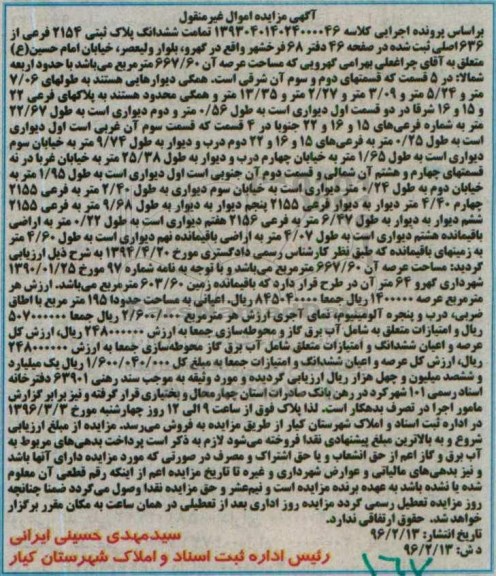 آگهی مزایده اموال غیرمنقول
براساس پرونده اجرایی کلاسه ۱۳۹۳۰۴۰۱۴۰۲۴۰۰۰۰۴۶ تمامت ششدانگ پلاک ثبتی ۲۱۵۴ فرعی از
۶۳۶ اصلی ثبت شده در صفحه ۴۶ دفتر ۶۸ فرخشهر واقع در گهرو، بلوار ولیعصر، خیابان امام حسین(ع)
متعلق به آقای چراغعلی بهرامی گهرویی که مساحت عرصه آن ۶۶۷/۶۰ مترمربع می‌باشد با حدود اربعه
شمالا: در ۵ قسمت که قسمتهای دوم و سوم آن شرقی است. همگی دیوارهایی هستند به طولهای ۷/۰۶
متر و ۵/۲۴ متر و ۳/۰۹ متر و ۲/۲۷ متر و ۱۳/۳۵ متر و همگی محدود هستند به پلاکهای فرعی ۲۲
و ۱۵ و ۱۶ شرقا در دو قسمت اول دیواری است به طول ۰/۵۶ متر و دوم دیواری است به طول ۲۲/۶۷
متر به شماره فرعی‌های ۱۵ و ۱۶ و ۲۲ جنوبا در ۴ قسمت که قسمت سوم آن غربی است اول دیواری
است به طول ۰/۲۵ متر به فرعی‌های ۱۵ و ۱۶ و ۲۲ دوم درب و دیوار به طول ۹/۷۴ متر به خیابان سوم
دیواری است به طول ۱/۶۵ متر به خیابان چهارم درب و دیوار به طول ۲۵/۳۸ متر به خیابان غربا در نه
قسمتهای چهارم و هشتم آن شمالی و قسمت دوم آن جنوبی است اول دیواری است به طول ۱/۹۵ متر به
خیابان دوم به طول ۰/۲۴ متر دیواری است به خیابان سوم دیواری به طول ۲/۴۰ متر به فرعی ۲۱۵۵
چهارم ۴/۴۰ متر دیوار به دیوار فرعی ۲۱۵۵ پنجم دیوار به دیوار به طول ۹/۶۸ متر به فرعی ۲۱۵۵
ششم دیوار به دیوار به طول ۶/۴۷ متر به فرعی ۲۱۵۶ هفتم دیواری است به طول ۰/۲۲ متر به اراضی
باقیمانده هشتم دیواری است به طول ۴/۰۷ متر به اراضی باقیمانده نهم دیواری است به طول ۴/۶۰ متر
به زمینهای باقیمانده که طبق نظر کارشناس رسمی دادگستری مورخ ۱۳۹۴/۴/۲۰ به شرح ذیل ارزیابی
گردید: مساحت عرصه آن ۶۶۷/۶۰ مترمربع می‌باشد و با توجه به نامه شماره ۹۷ مورخ ۱۳۹۰/۰۱/۲۵
شهرداری گهرو ۶۴ متر آن در طرح قرار دارد که باقیمانده زمین ۶۰۳/۶۰ مترمربع می‌باشد. ارزش هر
مترمربع عرصه ۱۴۰۰۰۰۰ ریال جمعا ۸۴۵۰۴۰۰۰۰ ریال. اعیانی به مساحت حدودا ۱۹۵ متر مربع با طاق
ضربی، درب و پنجره آلومینیوم، نمای آجری ارزش هر مترمربع ۲/۶۰۰/۰۰۰ ریال جمعا ۵۰۷۰۰۰۰۰۰
ریال و امتیازات متعلق به شامل آب برق گاز و محوطه‌سازی جمعا به ارزش ۲۴۸۰۰۰۰۰۰ ریال، ارزش کل
عرصه و اعیان ششدانگ و امتیازات متعلق شامل آب برق گاز محوطه‌سازی جمعا به ارزش ۲۴۸۰۰۰۰۰۰
ریال، ارزش کل عرصه و اعیان ششدانگ و امتیازات جمعا به مبلغ کل ۱/۶۰۰/۰۴۰/۰۰۰ ریال یک میلیارد
و ششصد میلیون و چهل هزار ریال ارزیابی گردیده و مورد وثیقه به موجب سند رهنی ۶۳۹۰۱ دفترخانه
اسناد رسمی ۱۰۱ شهرکرد در رهن بانک صادرات استان چهارمحال و بختیاری قرار گرفته و نیز برابر گزارش
مامور اجرا در تصرف بدهکار است. لذا پلاک فوق از ساعت ۹ الی ۱۲ روز چهارشنبه مورخ ۱۳۹۶/۳/۳
در اداره ثبت اسناد و املاک شهرستان کیار از طریق مزایده به فروش می‌رسد. مزایده از مبلغ ارزیابی
شروع و به بالاترین مبلغ پیشنهادی نقدا فروخته می‌شود لازم به ذکر است پرداخت بدهی‌های مربوط به
آب برق و گاز اعم از حق انشعاب و یا حق اشتراک و مصرف در صورتی که مورد مزایده دارای آنها باشد
و نیز بدهی‌های مالیاتی و عوارض شهرداری و غیره تا تاریخ مزایده اعم از اینکه رقم قطعی آن معلوم
شده یا نشده باشد به عهده برنده مزایده است و نیم‌عشر و حق مزایده نقدا وصول می‌گردد ضمنا چنانچه
روز مزایده تعطیل رسمی گردد مزایده روز اداری بعد از تعطیلی در همان ساعت به مکان مقرر برگزار
خواهد شد. حقوق ارتفاقی ندارد.
تاریخ انتشار: ۹۶/۲/۱۳
د ش: ۹۶/۲/۱۳
سیدمهدی حسینی ایرانی
رئیس اداره ثبت اسناد و املاک شهرستان کیار
۱۶۷